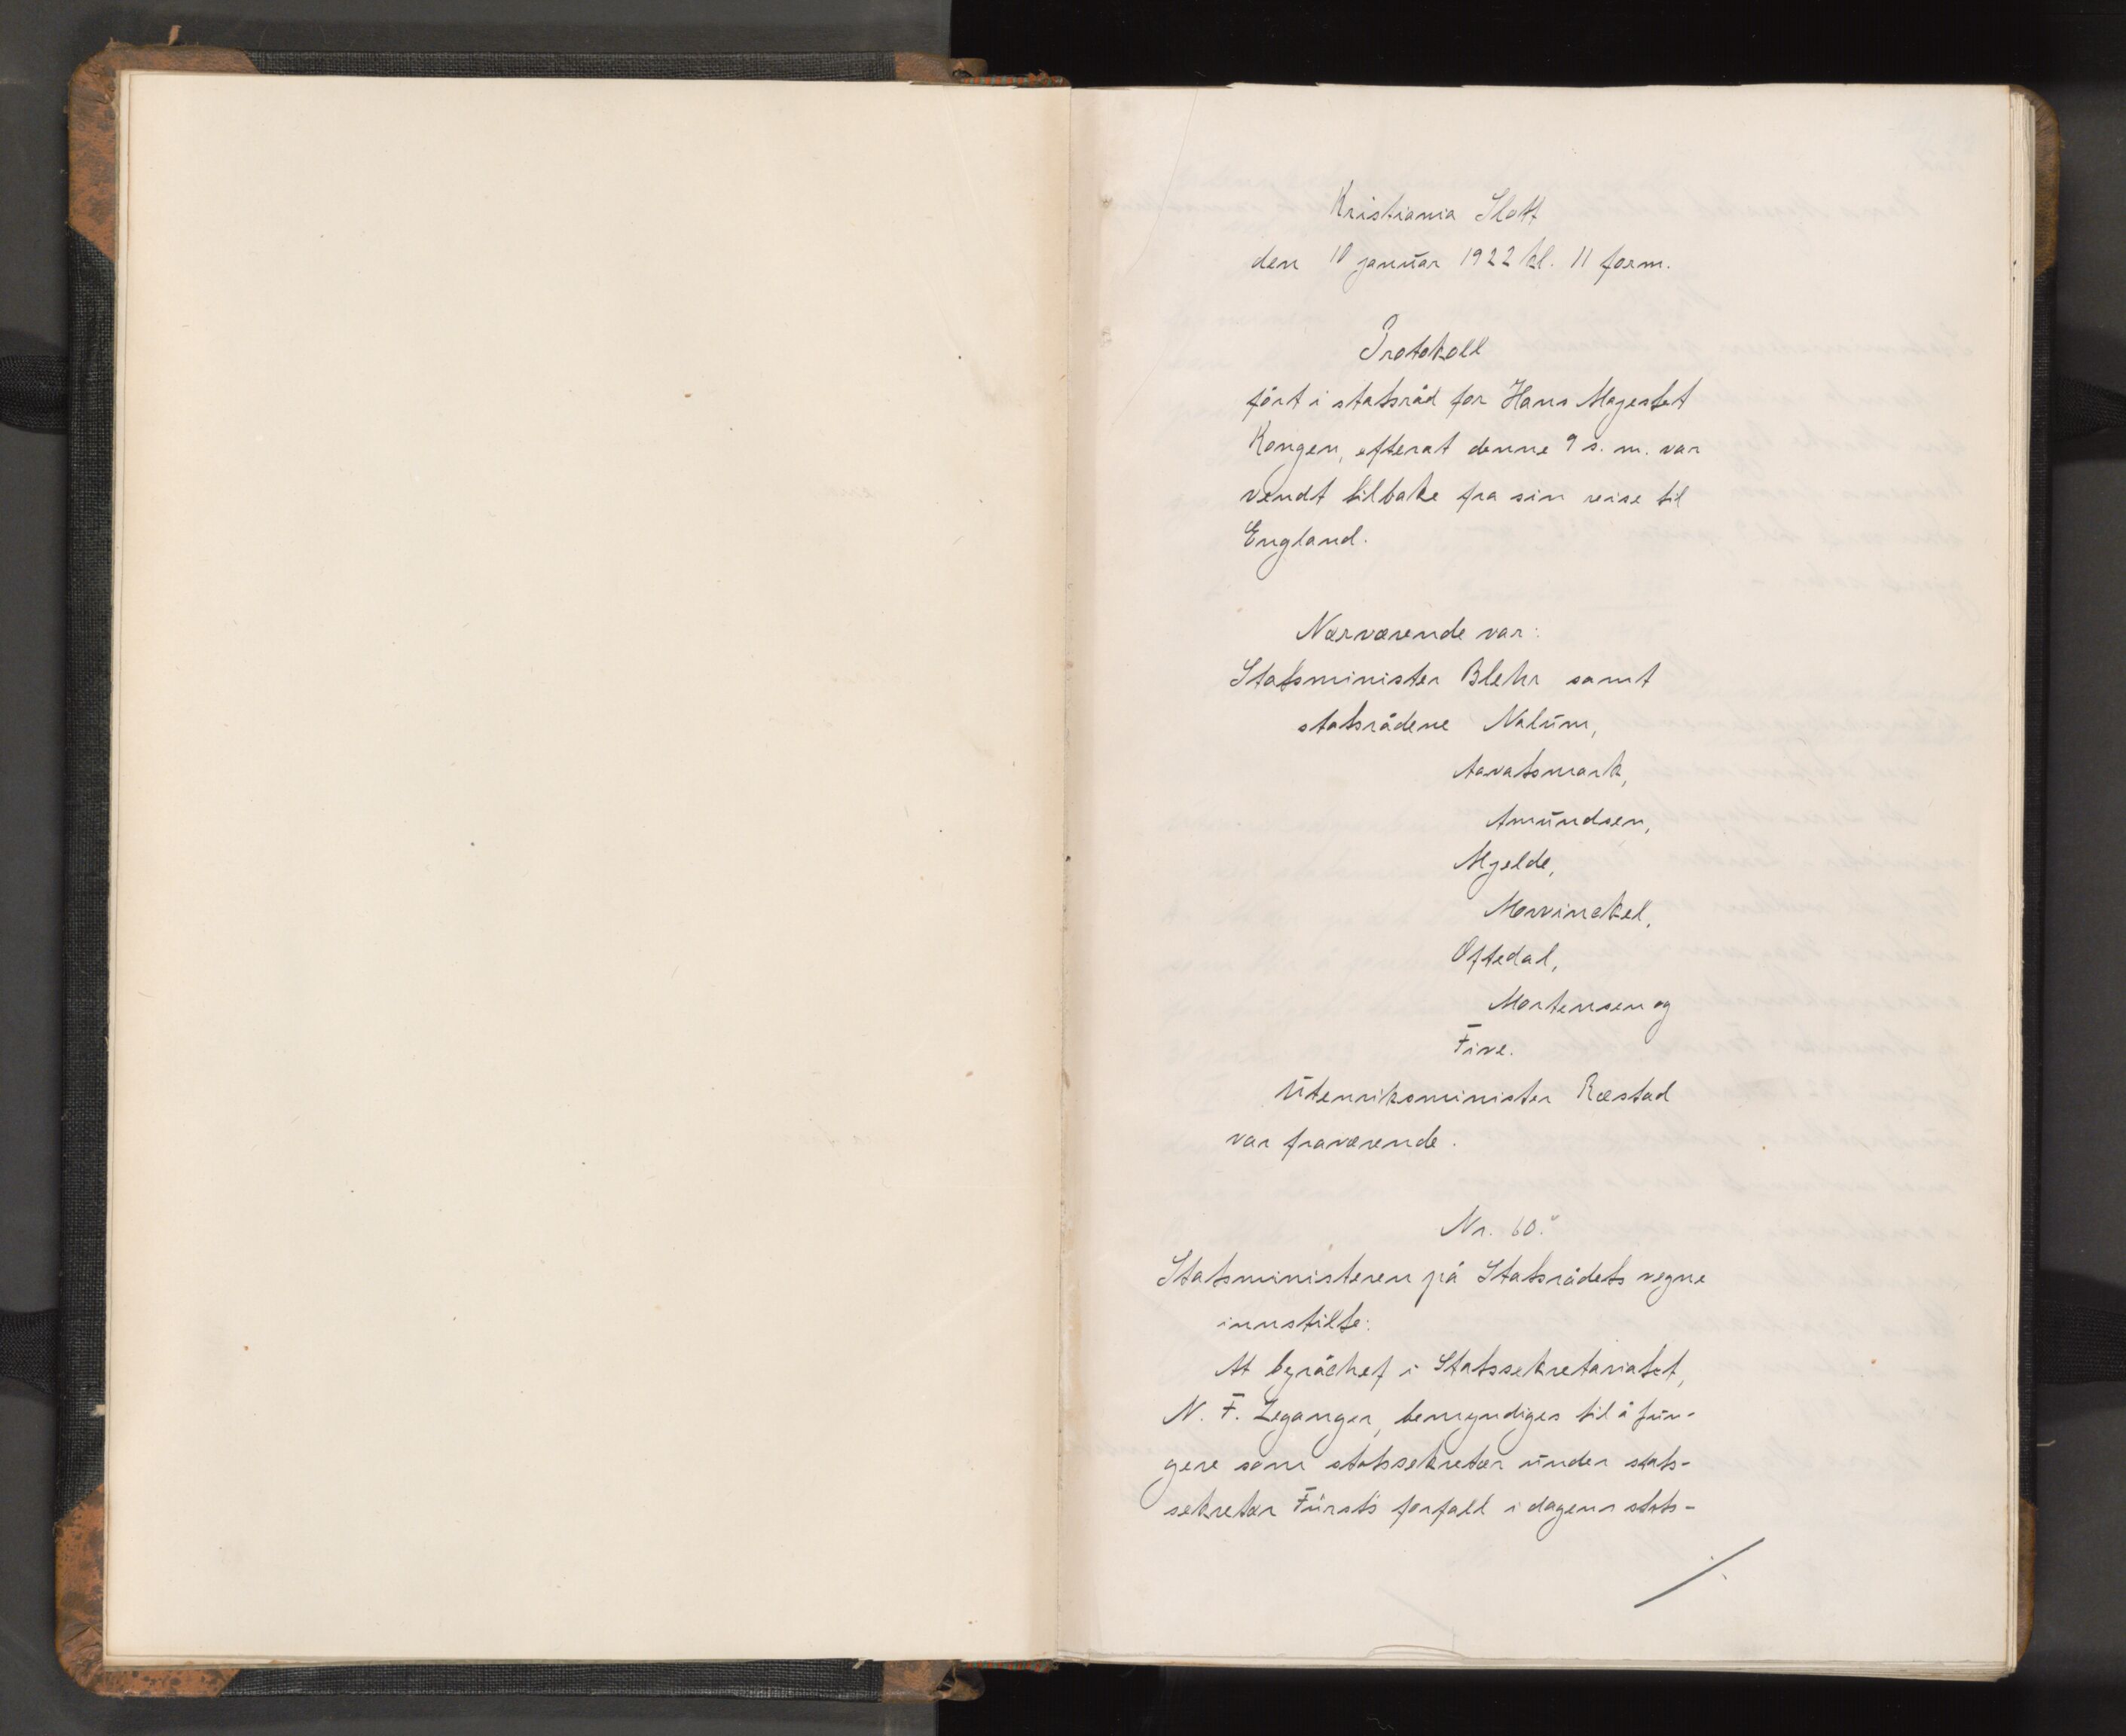 Kristiania Slott
den 10 januar 1922 kl. 11 form.
Protokoll
ført i statsråd for Hans Majestet
Kongen, efterat denne 9 s. m. var
vendt tilbake fra sin reise til
England.
Nærværende var:
Statsminister Blehr samt
statsrådene Nalum,
Aavatsmark,
Amundsen,
Mjelde,
Mowinckel,
Oftedal,
Mortensen og
Five.
Utenriksminister Ræstad
var fraværende.
Nr. 60.
Statsministeren på Statsrådets vegne
innstilte:
At byråchef i Statssekretariatet,
N. F. Leganger, bemyndiges til å fun-
gere som statssekretær under stats-
sekretær Fürst's forfall i dagens stats-